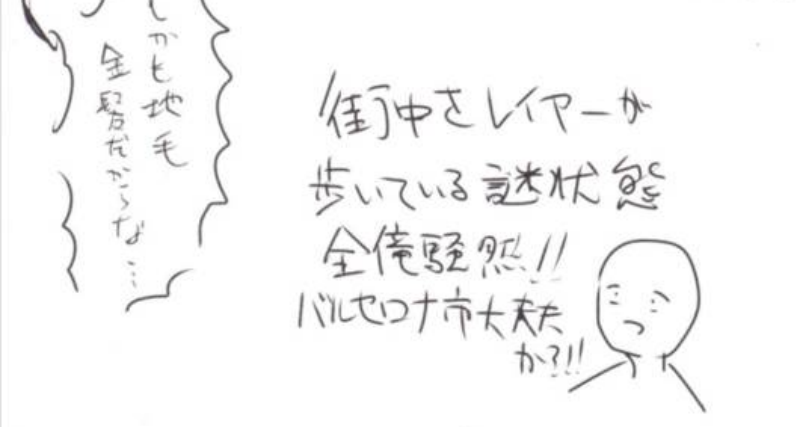 しかも地毛
金髪だからな…
街中をレイヤーが
歩いている謎状態
全俺騒然!!
バルセロナ市大丈夫
か?!!